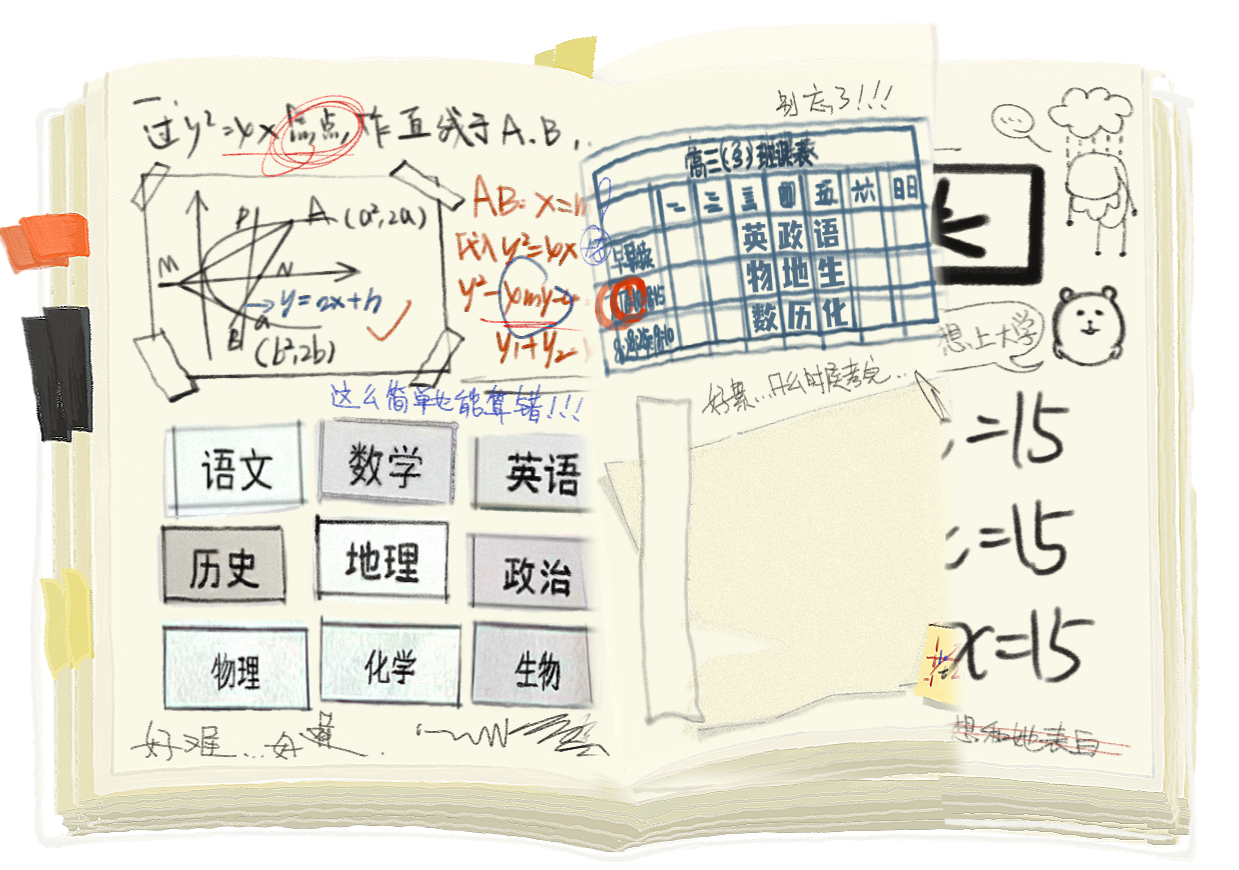 一.
过y²=4x 焦点,作直线于A.B,..
P A (a²,2a)
M N
y=nx+n
B
(b²,2b)
AB: x=
代入 y²=4x
y²-4my-
y₁+y₂=
这么简单也能算错!!!
语文 数学 英语
历史 地理 政治
物理 化学 生物
好难...
别忘了!!!
高三(3)班课表
一 二 三 四 五 六 日
早早读 英 政 语
物 地 生
数 历 化
好累...什么时候考完..
想上大学
=15
=15
x=15
想和她表白